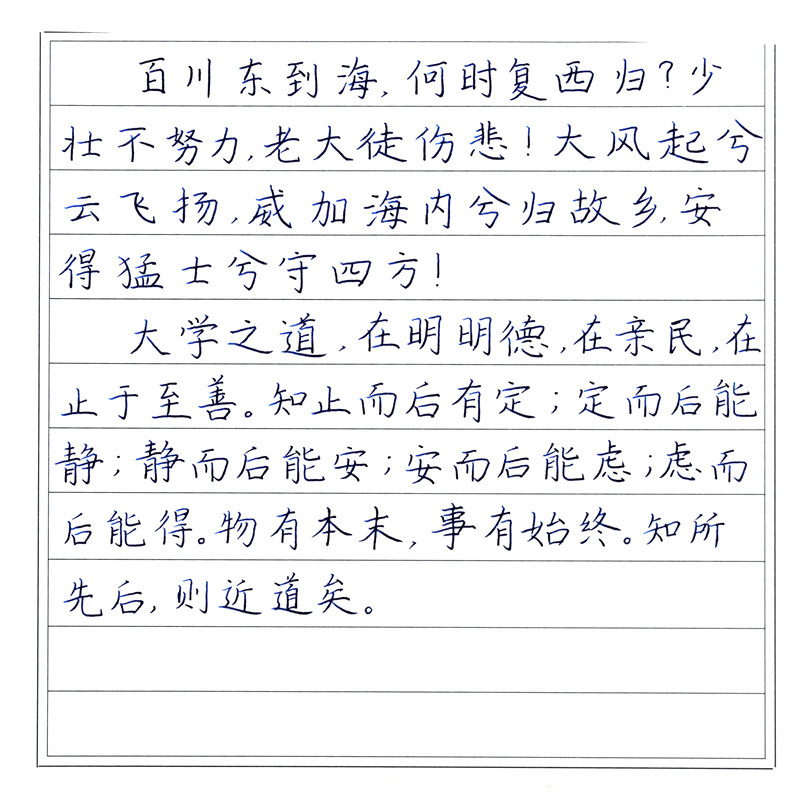 百川东到海,何时复西归?少
壮不努力,老大徒伤悲!大风起兮
云飞扬,威加海内兮归故乡,安
得猛士兮守四方!
大学之道,在明明德,在亲民,在
止于至善。知止而后有定;定而后能
静;静而后能安;安而后能虑;虑而
后能得。物有本末,事有始终。知所
先后,则近道矣。